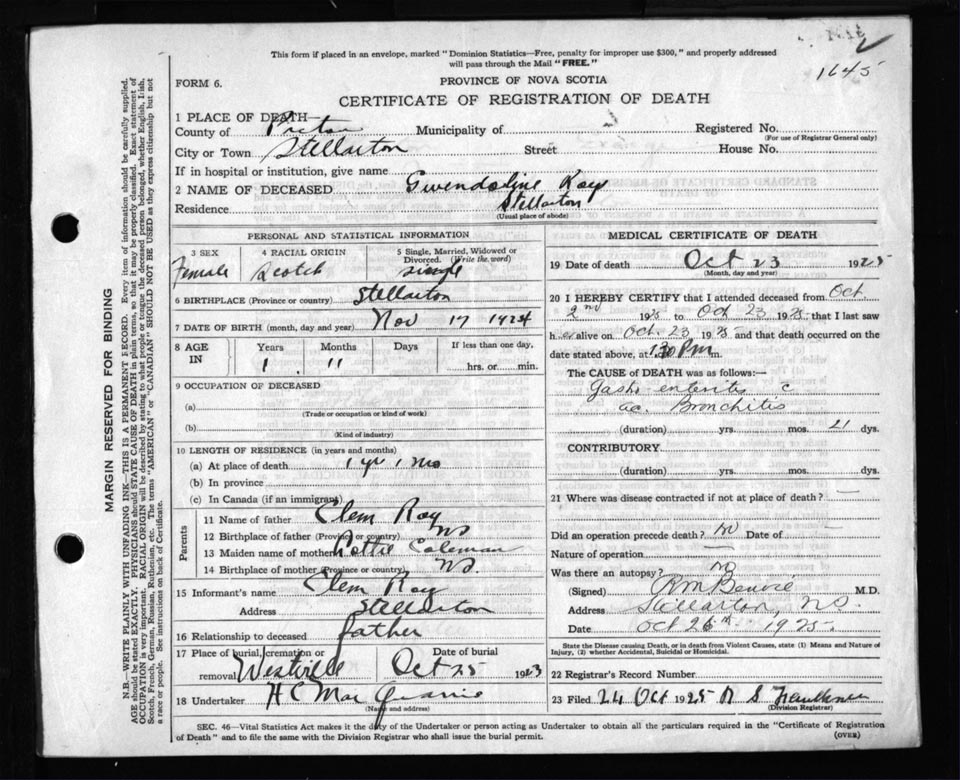 1645
This form if placed in an envelope, marked "Dominion Statistics—Free, penalty for improper use $300," and properly addressed
will pass through the Mail "FREE."
FORM 6.
PROVINCE OF NOVA SCOTIA
CERTIFICATE OF REGISTRATION OF DEATH
1 PLACE OF DEATH—
County of Pictou Municipality of Registered No.
(For use of Registrar General only)
City or Town Stellarton Street House No.
If in hospital or institution, give name
2 NAME OF DECEASED Gwendoline Roy
Residence Stellarton
(Usual place of abode)
PERSONAL AND STATISTICAL INFORMATION
3 SEX 4 RACIAL ORIGIN 5 Single, Married, Widowed or Divorced. (Write the word)
Female Scotch single
6 BIRTHPLACE (Province or country) Stellarton
7 DATE OF BIRTH (month, day and year) Nov 17 1924
8 AGE IN Years Months Days If less than one day,
1 11 hrs. or min.
9 OCCUPATION OF DECEASED
(a)
(Trade or occupation or kind of work)
(b)
(Kind of industry)
10 LENGTH OF RESIDENCE (in years and months)
(a) At place of death 1 yr 1 mo
(b) In province
(c) In Canada (if an immigrant)
Parents
11 Name of father Clem Roy
12 Birthplace of father (Province or country) NS
13 Maiden name of mother Coleman
14 Birthplace of mother (Province or country) NS.
15 Informant's name Clem Roy
Address Stellarton
16 Relationship to deceased father
17 Place of burial, cremation or removal Westville Date of burial Oct 25 1923
18 Undertaker H C MacQuarrie
(Name and address)
MEDICAL CERTIFICATE OF DEATH
19 Date of death Oct 23 1925
(Month, day and year)
20 I HEREBY CERTIFY that I attended deceased from Oct
2nd 1925 to Oct 23 1925 that I last saw
her alive on Oct. 23 1925 and that death occurred on the
date stated above, at 1.30 Pm.
The CAUSE of DEATH was as follows:—
Gastro enteritis c
ac. Bronchitis
(duration) yrs. mos. 21 dys.
CONTRIBUTORY
(duration) yrs. mos. dys.
21 Where was disease contracted if not at place of death? —
Did an operation precede death? No Date of —
Nature of operation —
Was there an autopsy? No
(Signed) M.D.
Address Stellarton, NS.
Date Oct 26th 1925.
State the Disease causing Death, or in death from Violent Causes, state (1) Means and Nature of
Injury, (2) whether Accidental, Suicidal or Homicidal.
22 Registrar's Record Number
23 Filed 24 Oct 1925 S Faulkner
(Division Registrar)
SEC. 46—Vital Statistics Act makes it the duty of the Undertaker or person acting as Undertaker to obtain all the particulars required in the "Certificate of Registration
of Death" and to file the same with the Division Registrar who shall issue the burial permit. (OVER)
MARGIN RESERVED FOR BINDING
N.B.—WRITE PLAINLY WITH UNFADING INK—THIS IS A PERMANENT RECORD. Every item of information should be carefully supplied.
AGE should be stated EXACTLY. PHYSICIANS should STATE CAUSE OF DEATH in plain terms, so that it may be properly classified. Exact statement of
OCCUPATION is very important. RACIAL ORIGIN will be described by stating to what people or tongue the deceased person belonged, whether English, Irish,
Scotch, French, German, Russian, Ruthenian, etc. The terms "AMERICAN" or "CANADIAN" SHOULD NOT BE USED as they express citizenship but not
a race or people. See instructions on back of Certificate.